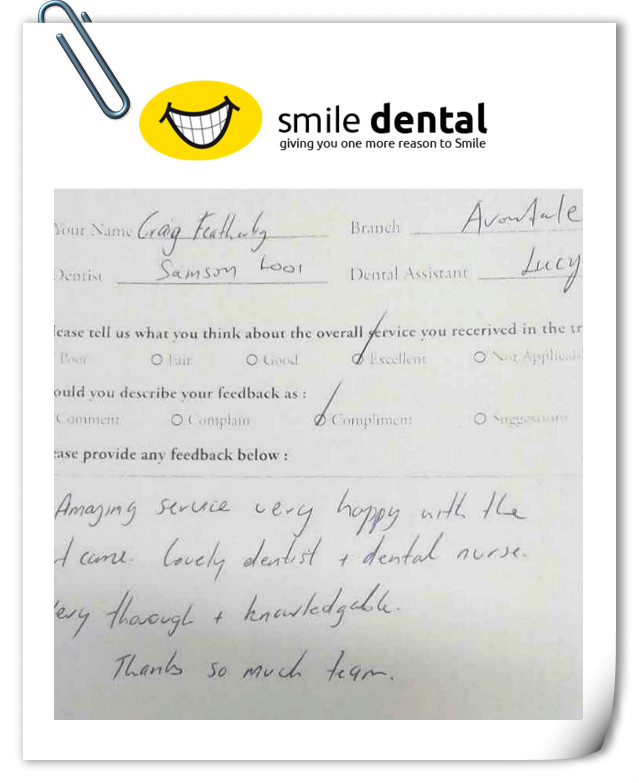 smile dental
giving you one more reason to Smile
Your Name Craig Featherby Branch Avondale
Dentist Samson Looi Dental Assistant Lucy
lease tell us what you think about the overall service you recerived in the tr
Poor Fair Good Excellent Not Applicab
ould you describe your feedback as :
Comment Complain Compliment Suggestions
ease provide any feedback below :
Amazing service very happy with the
lovely dentist + dental nurse.
ery thorough + knowledgable.
Thanks so much team.